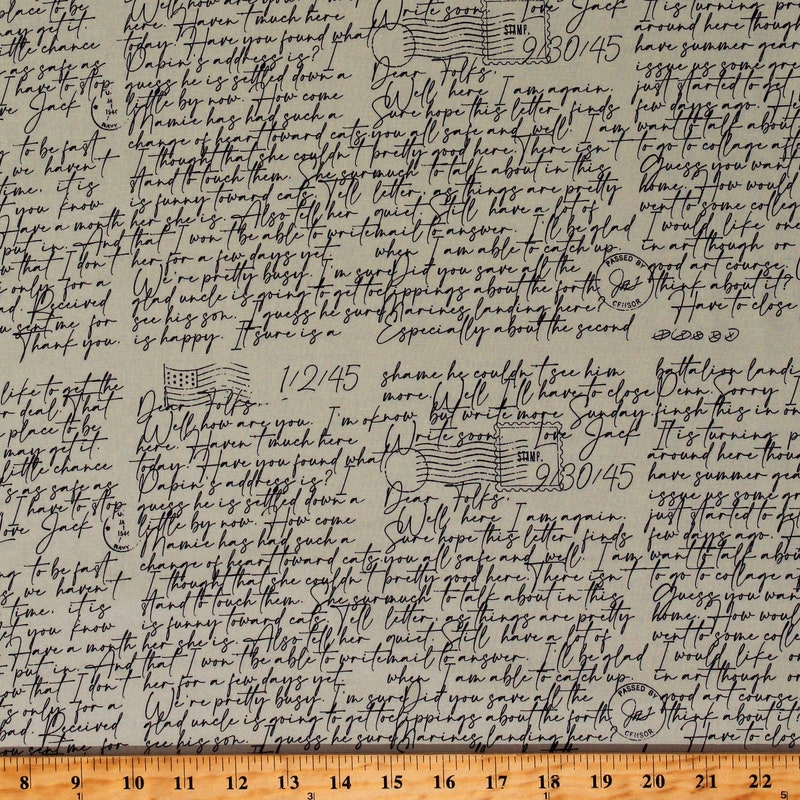 place to be
may get it.
little chance
as safe as
I have to stop
Jack
NAVY
g to be fast
we haven't
time, it is
you know
Have a month
put in. And
that I don't
only for a
Received
sent me for
Thank you.
Well, how are you.
here. Haven't much here
today. Have you found what
Papin's address is? I
guess he is settled down a
little by now. How come
Mamie has had such a
change of heart toward cats
I thought that she couldn't
stand to touch them. She sure
is funny toward cats. Tell
her she is. Also tell her
that I won't be able to write
her for a few days yet.
We're pretty busy. I'm sure
glad uncle is going to get to
see his son. I guess he sure
is happy. It sure is a
Write soon
Love Jack
STAMP.
9/30/45
Dear Folks,
Well here I am again.
Sure hope this letter finds
you all safe and well. I am
pretty good here. There isn't
much to talk about in this
letter, as things are pretty
quiet. Still have a lot of
mail to answer. I'll be glad
when I am able to catch up.
Did you save all the
clippings about the forth
Marines landing here?
Especially about the second
PASSED BY
CENSOR
It is turning
around here though
have summer gear
issue us some
just started to get
few days ago.
want to talk about
to go to collage
Guess you want
home. How would
went to some
I would like one
in art though or
good art course.
think about it?
Have to close
like to get the
deal. That
place to be
may get it.
little chance
as safe as
I have to stop
ove Jack
NAVY
to be fast
we haven't
time, it is
you know
Have a month
put in. And
that I don't
only for a
Received
sent me for
1/2/45
Dear Folks,
Well, how are you. I'm ok
here. Haven't much here
today. Have you found what
Papin's address is? I
guess he is settled down a
little by now. How come
Mamie has had such a
change of heart toward cats
I thought that she couldn't
stand to touch them. She sure
is funny toward cats. Tell
her she is. Also tell her
that I won't be able to write
her for a few days yet.
We're pretty busy. I'm sure
glad uncle is going to get to
see his son. I guess he sure
shame he couldn't see him
more. Well I'll have to close
now but write more Sunday
Write soon
Love Jack
STAMP.
9/30/45
Dear Folks,
Well here I am again.
Sure hope this letter finds
you all safe and well. I am
pretty good here. There isn't
much to talk about in this
letter, as things are pretty
quiet. Still have a lot of
mail to answer. I'll be glad
when I am able to catch up.
Did you save all the
clippings about the forth
Marines landing here?
PASSED BY
CENSOR
battalion
Penn. Sorry I
finsh this in
It is turning
around here though
have summer gear
issue us some
just started to get
few days ago.
want to talk about
to go to collage
Guess you want
home. How would
went to some
I would like
in art though or
good art course.
think about it?
Have to close
8 9 10 11 12 13 14 15 16 17 18 19 20 21 22